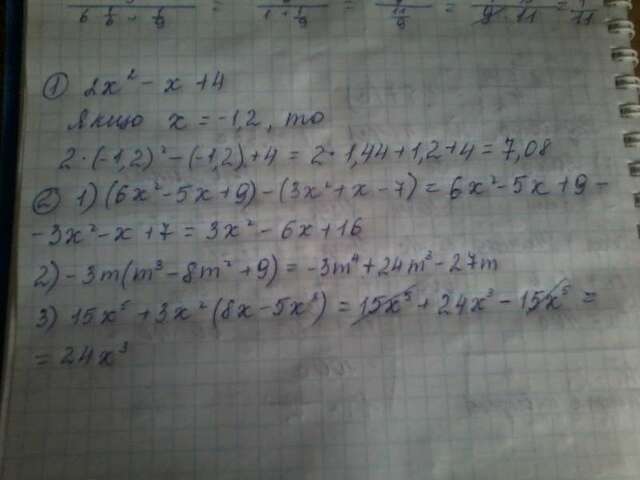 ① 2x² - x + 4
Якщо x = -1,2, то
2·(-1,2)² - (-1,2) + 4 = 2·1,44 + 1,2 + 4 = 7,08
② 1) (6x² - 5x + 9) - (3x² + x - 7) = 6x² - 5x + 9 -
- 3x² - x + 7 = 3x² - 6x + 16
2) -3m(m³ - 8m² + 9) = -3m⁴ + 24m³ - 27m
3) 15x⁵ + 3x²(8x - 5x³) = 15x⁵ + 24x³ - 15x⁵ =
= 24x³